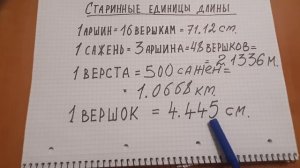 СТАРИННЫЕ ЕДИНИЦЫ ДЛИНЫ
1 АРШИН = 16 ВЕРШКАМ = 71.12 см.
1 САЖЕНЬ = 3 АРШИНА = 48 ВЕРШКОВ =
= 2.1336 м.
1 ВЕРСТА = 500 САЖЕН =
= 1.0668 км.
1 ВЕРШОК = 4.445 см.